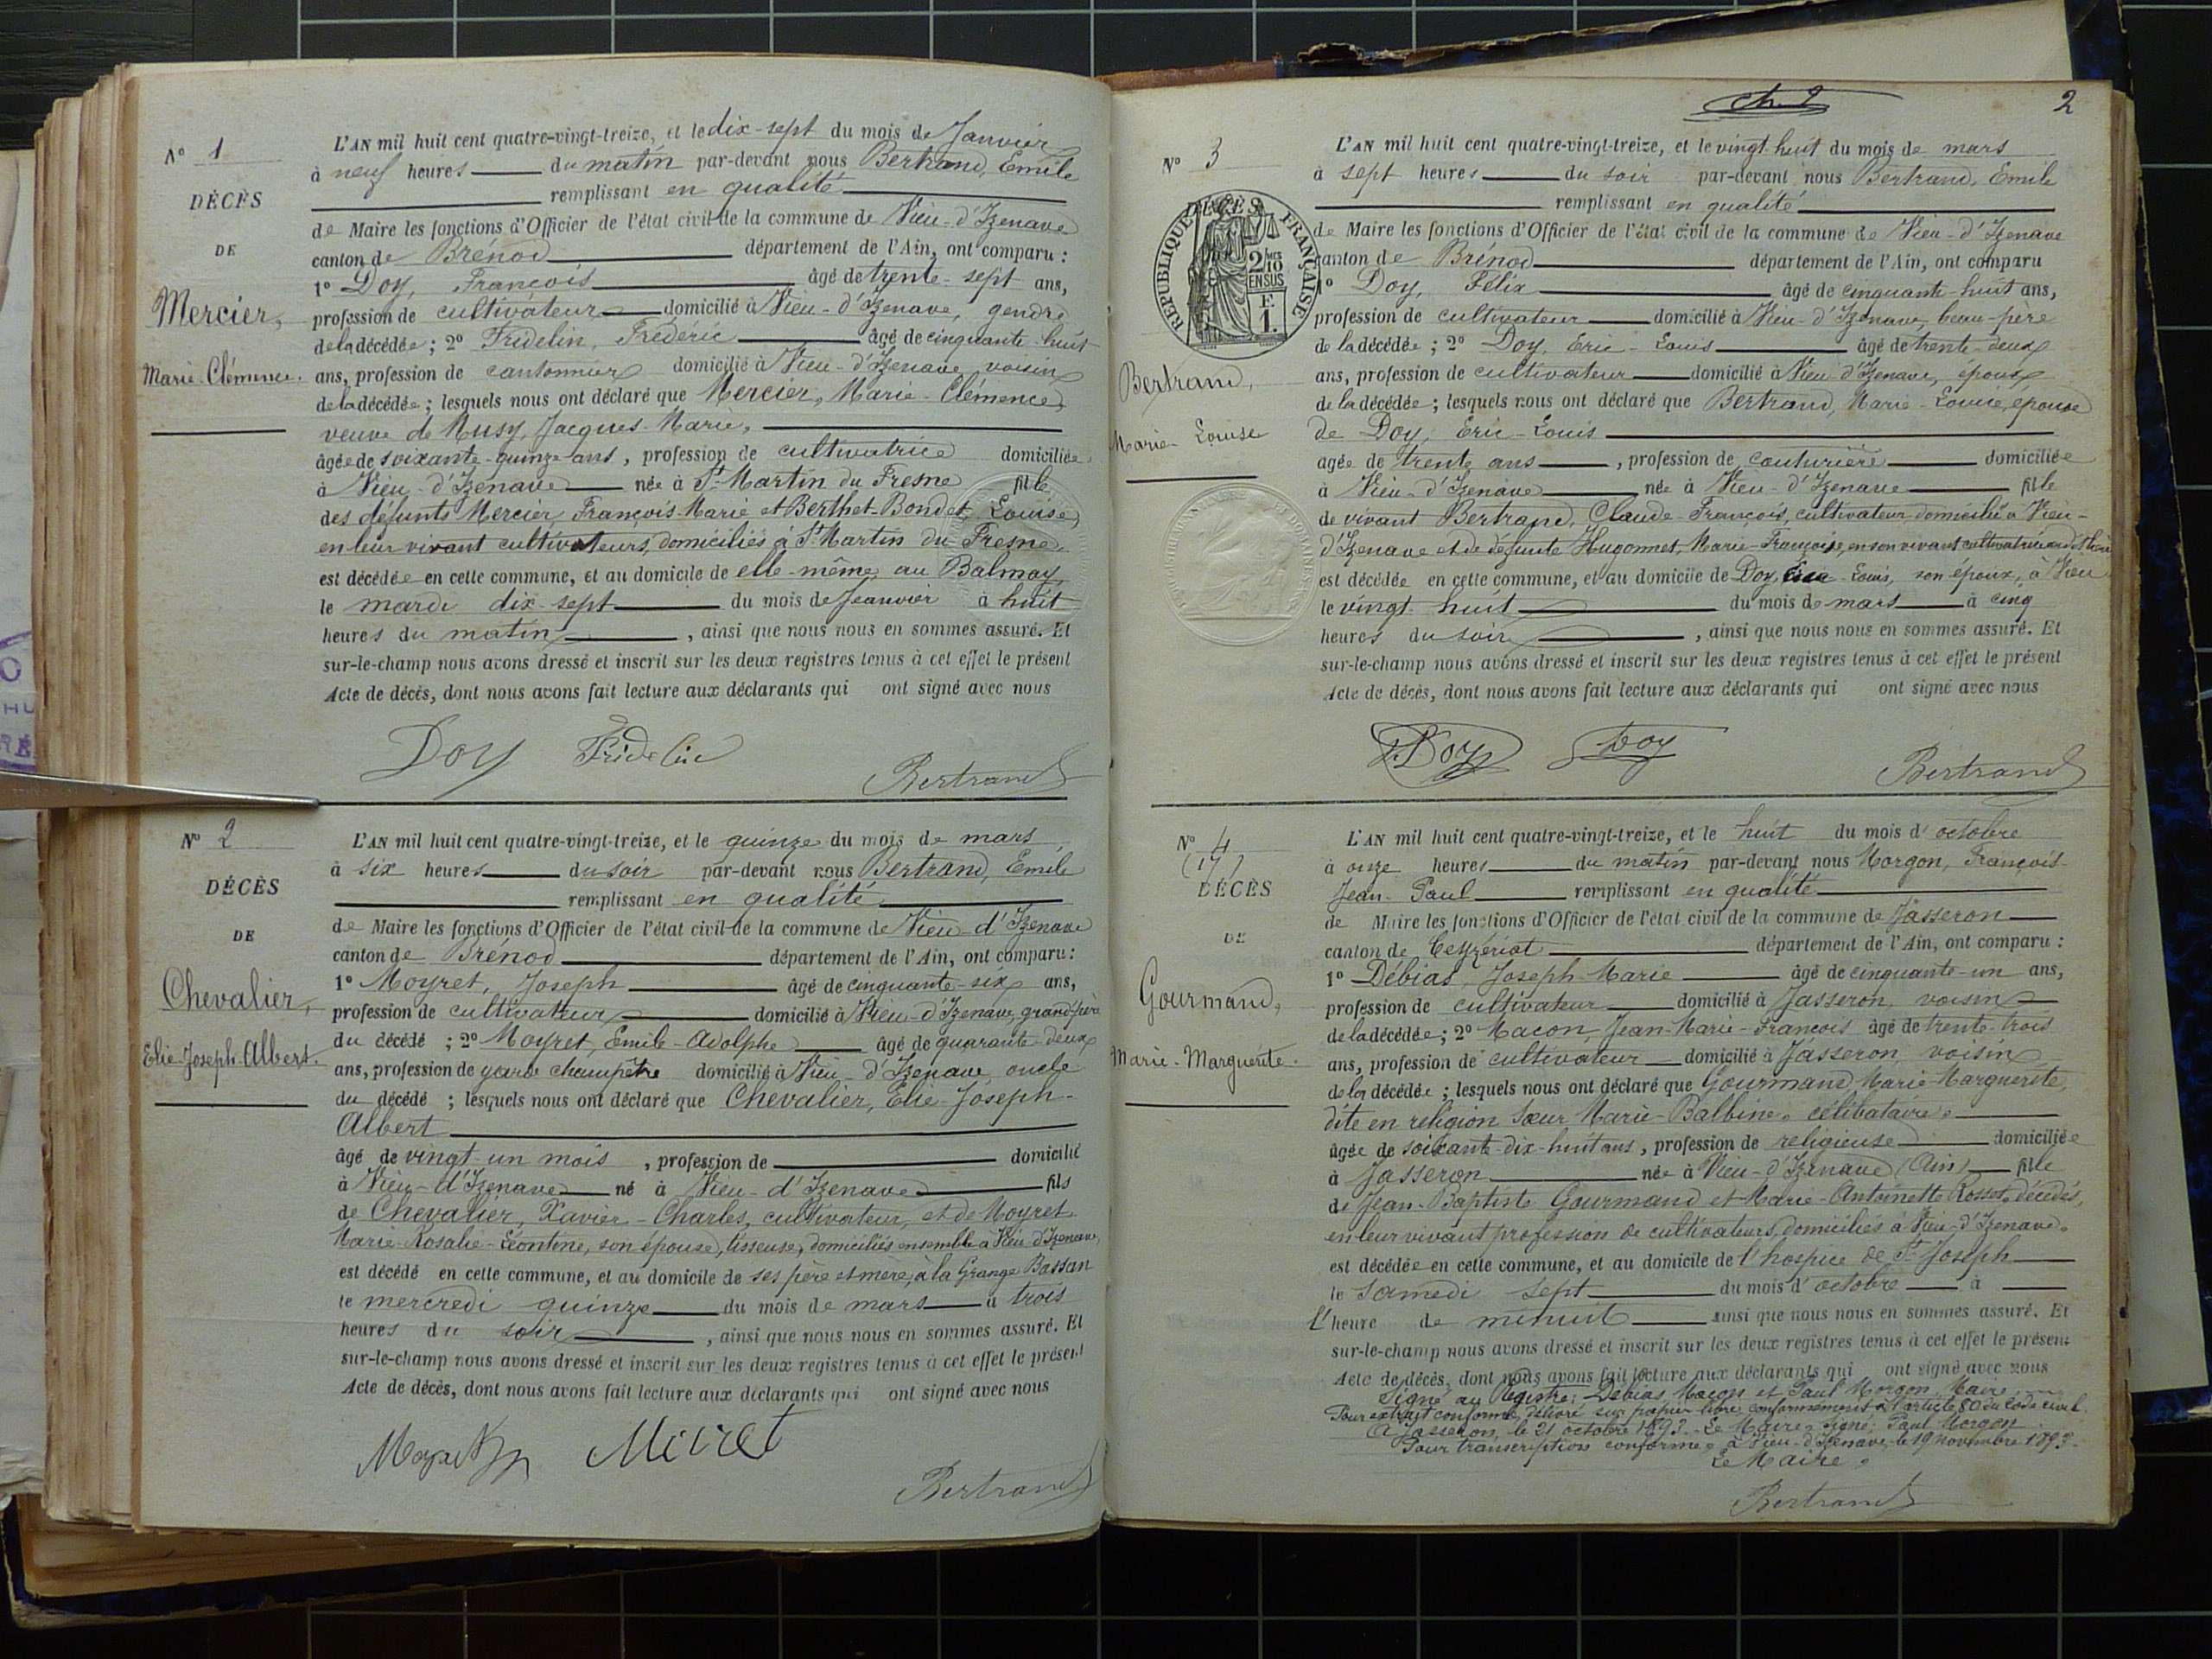 N° 1
DÉCÈS
DE
Mercier,
Marie-Clémence.
L'AN mil huit cent quatre-vingt-treize, et le dix-sept du mois de Janvier
à neuf heures du matin par-devant nous Bertrand, Emile
remplissant en qualité
de Maire les fonctions d'Officier de l'état civil de la commune de Vieu-d'Izenave
canton de Brénod département de l'Ain, ont comparu :
1° Doy, François âgé de trente-sept ans,
profession de cultivateur domicilié à Vieu-d'Izenave, gendre
de la décédée ; 2° Fridelin, Frédéric âgé de cinquante-huit
ans, profession de cantonnier domicilié à Vieu-d'Izenave voisin
de la décédée ; lesquels nous ont déclaré que Mercier, Marie-Clémence,
veuve de Musy, Jacques-Marie,
âgée de soixante-quinze ans, profession de cultivatrice domiciliée
à Vieu-d'Izenave née à St-Martin du Fresne fille
des défunts Mercier, François-Marie et Berthet-Bondet, Louise,
en leur vivant cultivateurs, domiciliés à St-Martin du Fresne,
est décédée en cette commune, et au domicile de elle-même, au Balmay,
le mardi dix-sept du mois de Jeanvier à huit
heures du matin, ainsi que nous nous en sommes assuré. Et
sur-le-champ nous avons dressé et inscrit sur les deux registres tenus à cet effet le présent
Acte de décès, dont nous avons fait lecture aux déclarants qui ont signé avec nous
Doy Fridelin
Bertrand
N° 2
DÉCÈS
DE
Chevalier,
Elie-Joseph-Albert.
L'AN mil huit cent quatre-vingt-treize, et le quinze du mois de mars
à six heures du soir par-devant nous Bertrand, Emile
remplissant en qualité
de Maire les fonctions d'Officier de l'état civil de la commune de Vieu-d'Izenave
canton de Brénod département de l'Ain, ont comparu :
1° Moyret, Joseph âgé de cinquante-six ans,
profession de cultivateur domicilié à Vieu-d'Izenave, grand-père
du décédé ; 2° Moyret, Emile-Adolphe âgé de quarante-deux
ans, profession de garde champêtre domicilié à Vieu-d'Izenave, oncle
du décédé ; lesquels nous ont déclaré que Chevalier, Elie-Joseph-
Albert
âgé de vingt-un mois, profession de domicilié
à Vieu-d'Izenave né à Vieu-d'Izenave fils
de Chevalier, Xavier-Charles, cultivateur, et de Moyret
Marie-Rosalie-Léontine, son épouse, tisseuse, domiciliés ensemble à Vieu-d'Izenave,
est décédé en cette commune, et au domicile de ses père et mère, à la Grange Bassan
le mercredi quinze du mois de mars à trois
heures du soir, ainsi que nous nous en sommes assuré. Et
sur-le-champ nous avons dressé et inscrit sur les deux registres tenus à cet effet le présent
Acte de décès, dont nous avons fait lecture aux déclarants qui ont signé avec nous
Bertrand
2
N° 3
DÉCÈS
RÉPUBLIQUE FRANÇAISE
2/10
EN SUS
F.
1.
Bertrand,
Marie-Louise
L'AN mil huit cent quatre-vingt-treize, et le vingt-huit du mois de mars
à sept heures du soir par-devant nous Bertrand, Emile
remplissant en qualité
de Maire les fonctions d'Officier de l'état civil de la commune de Vieu-d'Izenave
canton de Brénod département de l'Ain, ont comparu
1° Doy, Félix âgé de cinquante-huit ans,
profession de cultivateur domicilié à Vieu-d'Izenave, beau-père
de la décédée ; 2° Doy, Eric-Louis âgé de trente-deux
ans, profession de cultivateur domicilié à Vieu-d'Izenave, époux
de la décédée ; lesquels nous ont déclaré que Bertrand, Marie-Louise, épouse
de Doy, Eric-Louis
âgée de trente ans, profession de couturière domiciliée
à Vieu-d'Izenave née à Vieu-d'Izenave fille
de vivant Bertrand, Claude-François, cultivateur domicilié à Vieu-
d'Izenave et de défunte Hugonnet, Marie-Françoise, en son vivant cultivatrice
est décédée en cette commune, et au domicile de Doy, Eric-Louis, son époux, à Vieu
le vingt-huit du mois de mars à cinq
heures du soir, ainsi que nous nous en sommes assuré. Et
sur-le-champ nous avons dressé et inscrit sur les deux registres tenus à cet effet le présent
Acte de décès, dont nous avons fait lecture aux déclarants qui ont signé avec nous
Doy Doy
Bertrand
N° 4
DÉCÈS
DE
Gourmand,
Marie-Marguerite.
L'AN mil huit cent quatre-vingt-treize, et le huit du mois d'octobre
à onze heures du matin par-devant nous Morgon, François-
Jean-Paul remplissant en qualité
de Maire les fonctions d'Officier de l'état civil de la commune de Jasseron
canton de Ceyzériat département de l'Ain, ont comparu :
1° Débias, Joseph-Marie âgé de cinquante-un ans,
profession de cultivateur domicilié à Jasseron, voisin
de la décédée ; 2° Macon, Jean-Marie-François âgé de trente-trois
ans, profession de cultivateur domicilié à Jasseron, voisin
de la décédée ; lesquels nous ont déclaré que Gourmand Marie Marguerite,
dite en religion Sœur Marie-Balbine, célibataire,
âgée de soixante-dix-huit ans, profession de religieuse domiciliée
à Jasseron née à Vieu-d'Izenave (Ain) fille
de Jean-Baptiste Gourmand et Marie-Antoinette Rosset, décédés,
en leur vivant profession de cultivateurs, domiciliés à Vieu-d'Izenave,
est décédée en cette commune, et au domicile de l'hospice de St-Joseph
le Samedi sept du mois d'octobre à
l'heure de minuit ainsi que nous nous en sommes assuré. Et
sur-le-champ nous avons dressé et inscrit sur les deux registres tenus à cet effet le présent
Acte de décès, dont nous avons fait lecture aux déclarants qui ont signé avec nous
Signé au Registre : Débias, Macon et Paul Morgon, Maire.
Pour extrait conforme, délivré sur papier libre conformément à l'article 80 du Code civil.
A Jasseron, le 21 octobre 1893. Le Maire, signé : Paul Morgon.
Pour transcription conforme, à Vieu-d'Izenave, le 19 novembre 1893.
Le Maire,
Bertrand